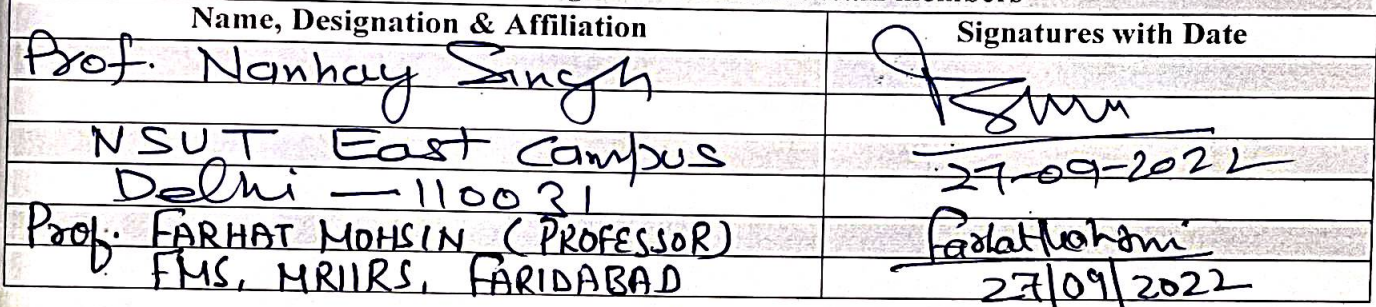 Name, Designation & Affiliation
Signatures with Date
Prof. Nanhay Singh
NSUT East Campus
27-09-2022
Delhi — 110031
Prof. FARHAT MOHSIN (PROFESSOR)
FMS, MRIIRS, FARIDABAD
27/09/2022